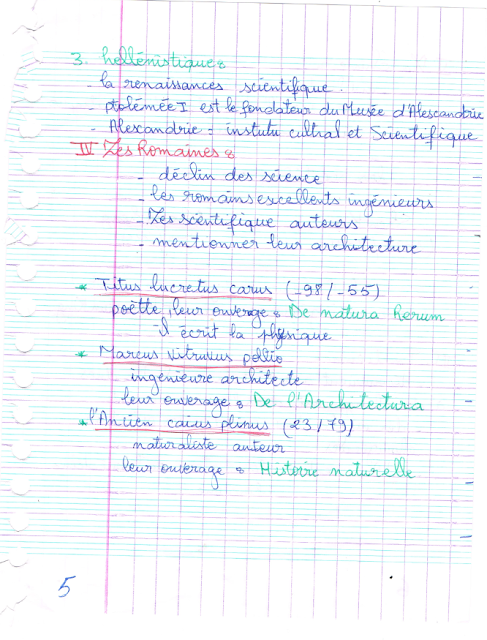 3. hellénistique :
- la renaissances scientifique.
- ptolémée I est le fondateur du Musée d'Alescandrie
- Alescandrie = instutu cultral et Scientifique
IV Les Romaines :
- déclin des science
- les romains excellents ingénieurs
- Les scientifique auteurs
- mentionner leur architecture
* Titus lucretus carus (-98/-55)
poëtte, leur ouverage : De natura Rerum
il écrit la physique
* Marcus Vitruvius pollio
ingénieure architecte
leur ouverage : De l'Architectura
* l'Antien caius plinus (23/79)
naturaliste auteur
leur ouverage : Histoire naturelle
5